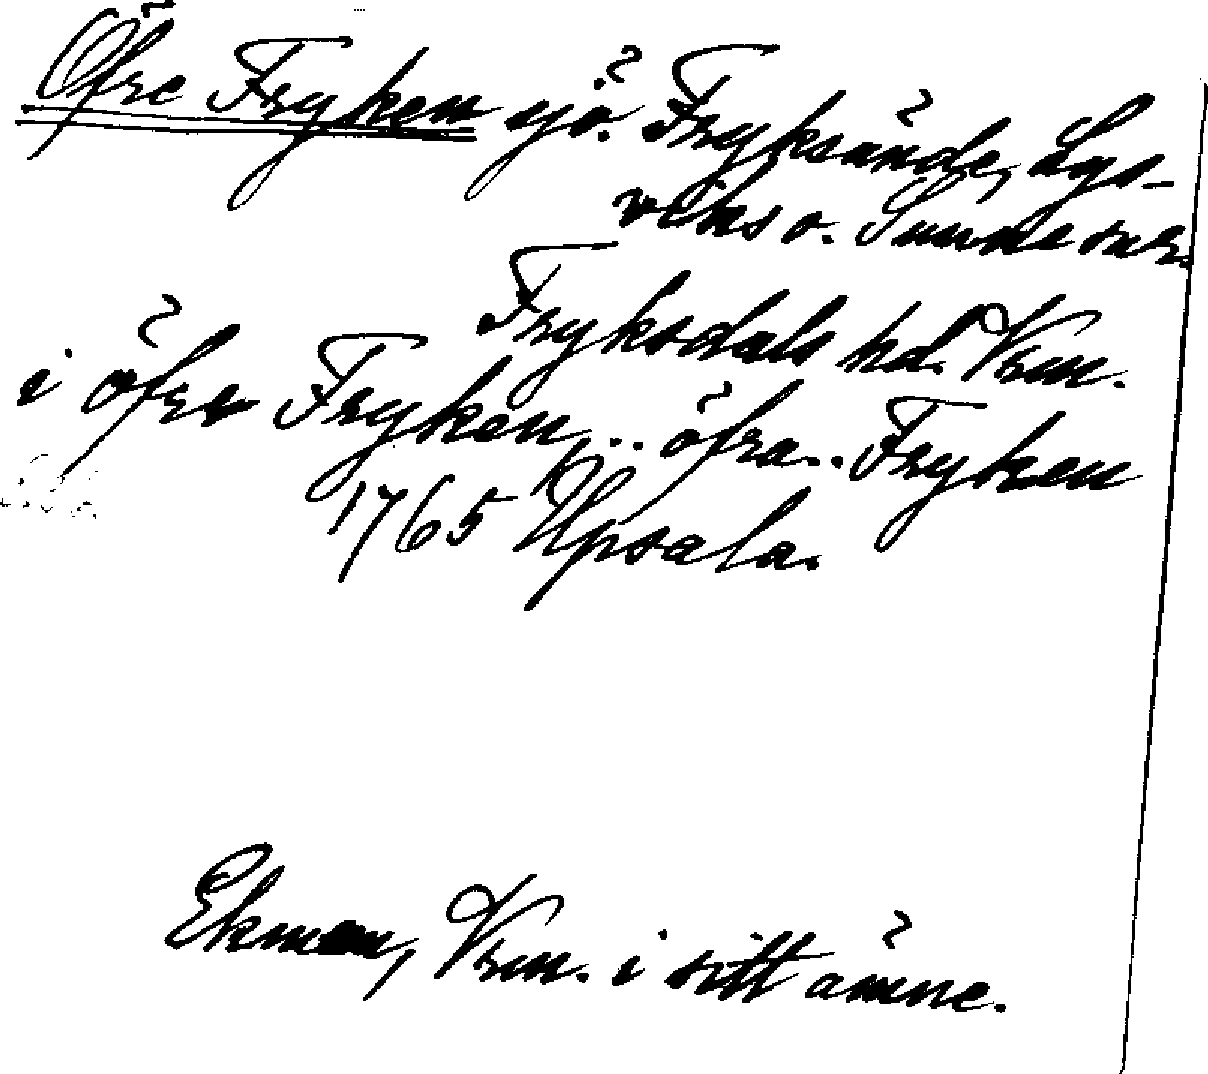 Öfre Fryken sjö. Fryksände, Lys-
viks o. Sunne snr.
Fryksdals hd. Vrm.
i öfre Fryken, .. öfra .. Fryken
1765 Upsala.
Ekman, Vrm. i sitt ämne.